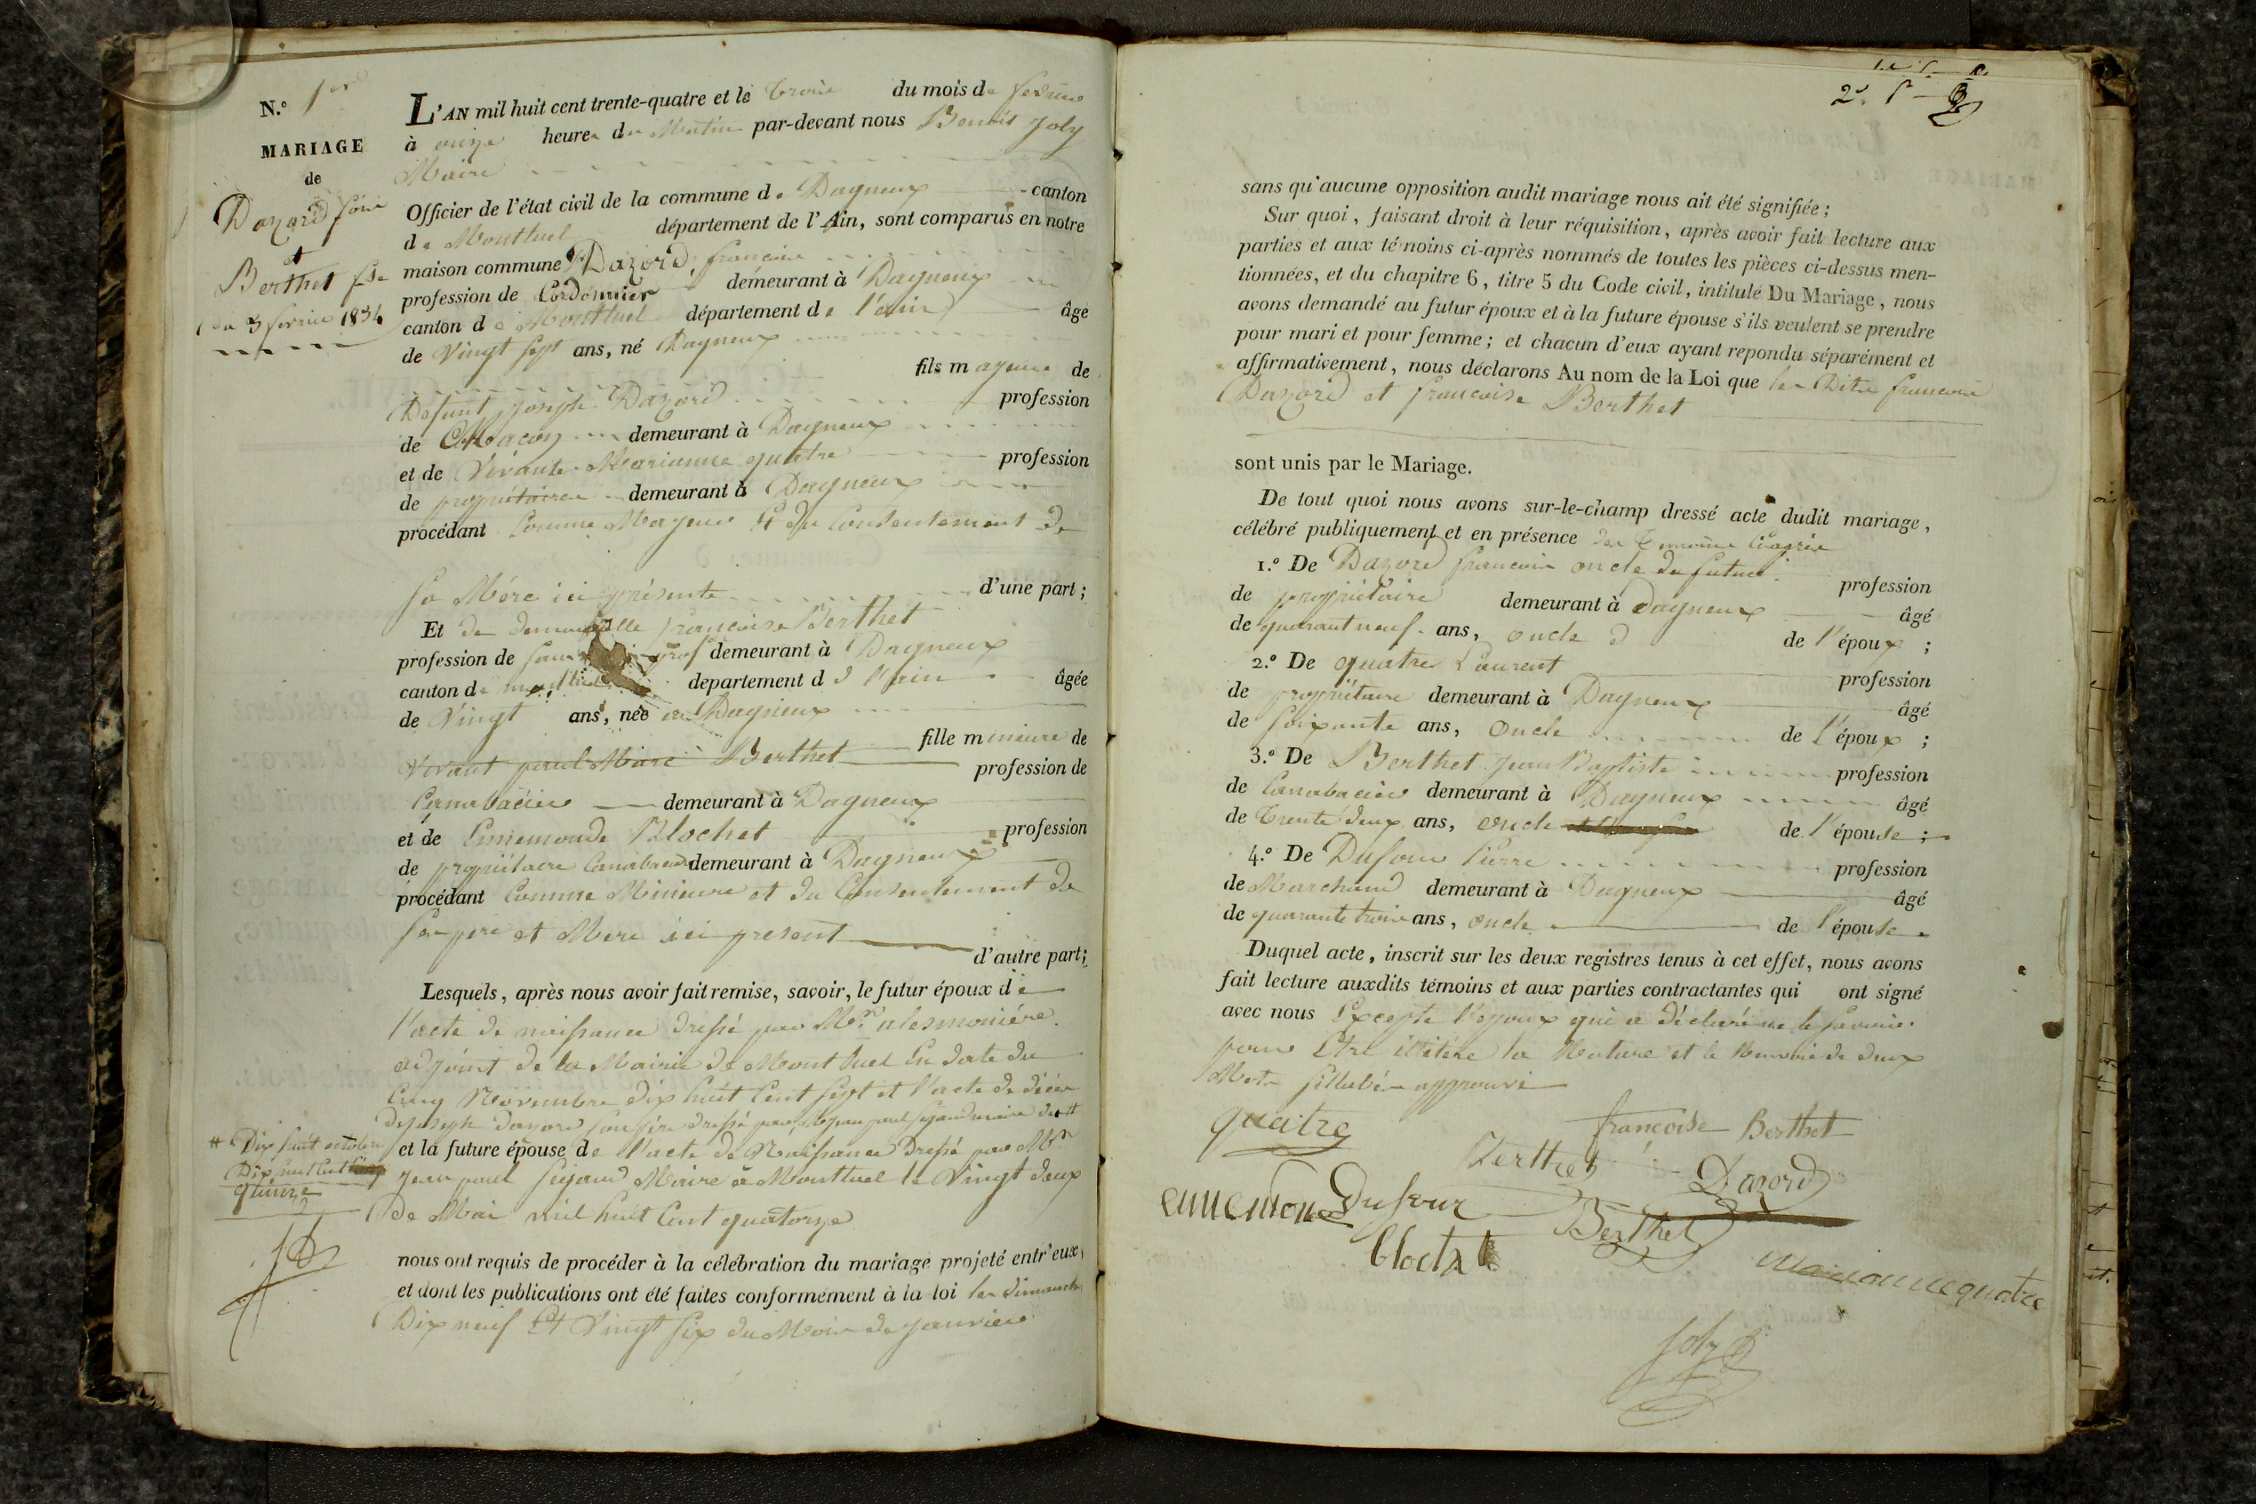 N.º 1er
MARIAGE
de
Dazord
et
Berthet
3 février 1834
L'AN mil huit cent trente-quatre et le trois du mois de février
à onze heures du Matin par-devant nous Benoit Joly
Maire
Officier de l'état civil de la commune de Dagneux canton
de Montluel département de l'Ain, sont comparus en notre
maison commune Dazord, françois
profession de Cordonnier demeurant à Dagneux
canton de Montluel département de l'ain âgé
de Vingt Sept ans, né Dagneux
fils majeur de
Défunt Joseph Dazord profession
de Macon demeurant à Dagneux
et de Vivante Marianne quatre profession
de propriétaire demeurant à Dagneux
procédant Comme Majeur Et du Consentement de
sa Mère ici présente d'une part;
Et de demoiselle françoise Berthet
profession de demeurant à Dagneux
canton de montluel departement de l'ain âgée
de Vingt ans, née a Dagneux
fille mineure de
vivant paul Marc Berthet profession de
Canabacier demeurant à Dagneux
et de Ennemonde Blochet profession
de propriétaire demeurant à Dagneux
procédant Comme Mineure et du Consentement de
ses père et Mere ici present
d'autre part;
Lesquels, après nous avoir fait remise, savoir, le futur époux de
l'acte de naissance dressé par Mr.
adjoint de la Mairie de Montluel En date du
Cinq Novembre dix huit Cent Sept et l'acte de décès
de joseph dazord son père dressé par jean paul maire #
# Dix huit octobre
Dix huit Cent
quinze
et la future épouse de l'acte de Naissance Dressé par Mr
jean paul Maire à Montluel le Vingt deux
de Mai mil huit Cent quatorze
nous ont requis de procéder à la célébration du mariage projeté entr'eux,
et dont les publications ont été faites conformément à la loi les dimanches
Dix neuf Et Vingt Six du Mois de janvier
2e
sans qu'aucune opposition audit mariage nous ait été signifiée;
Sur quoi, faisant droit à leur réquisition, après avoir fait lecture aux
parties et aux témoins ci-après nommés de toutes les pièces ci-dessus men-
tionnées, et du chapitre 6, titre 5 du Code civil, intitulé Du Mariage, nous
avons demandé au futur époux et à la future épouse s'ils veulent se prendre
pour mari et pour femme; et chacun d'eux ayant repondu séparément et
affirmativement, nous déclarons Au nom de la Loi que les Dits francois
Dazord et francoise Berthet
sont unis par le Mariage.
De tout quoi nous avons sur-le-champ dressé acte dudit mariage,
célébré publiquement et en présence des temoins
1.º De Dazord francois oncle du futur profession
de propriétaire demeurant à Dagneux âgé
de quarant neuf ans, oncle de l'époux;
2.º De quatre Laurent profession
de propriétaire demeurant à Dagneux âgé
de soixante ans, Oncle de l'époux;
3.º De Berthet Jean Baptiste profession
de Canabacier demeurant à Dagneux âgé
de Trente deux ans, oncle de l'épouse;
4.º De Dufour Pierre profession
de Marchand demeurant à Dagneux âgé
de quarante trois ans, oncle de l'épouse.
Duquel acte, inscrit sur les deux registres tenus à cet effet, nous avons
fait lecture auxdits témoins et aux parties contractantes qui ont signé
avec nous Excepté l'époux qui a déclaré ne le savoir
pour Etre illitéré la Nature et le de deux
Mots approuvé
quatre
françoise Berthet
Berthet
Dazord
ennemonde
Dufour
Berthet
bloche
marianne quatre
Joly